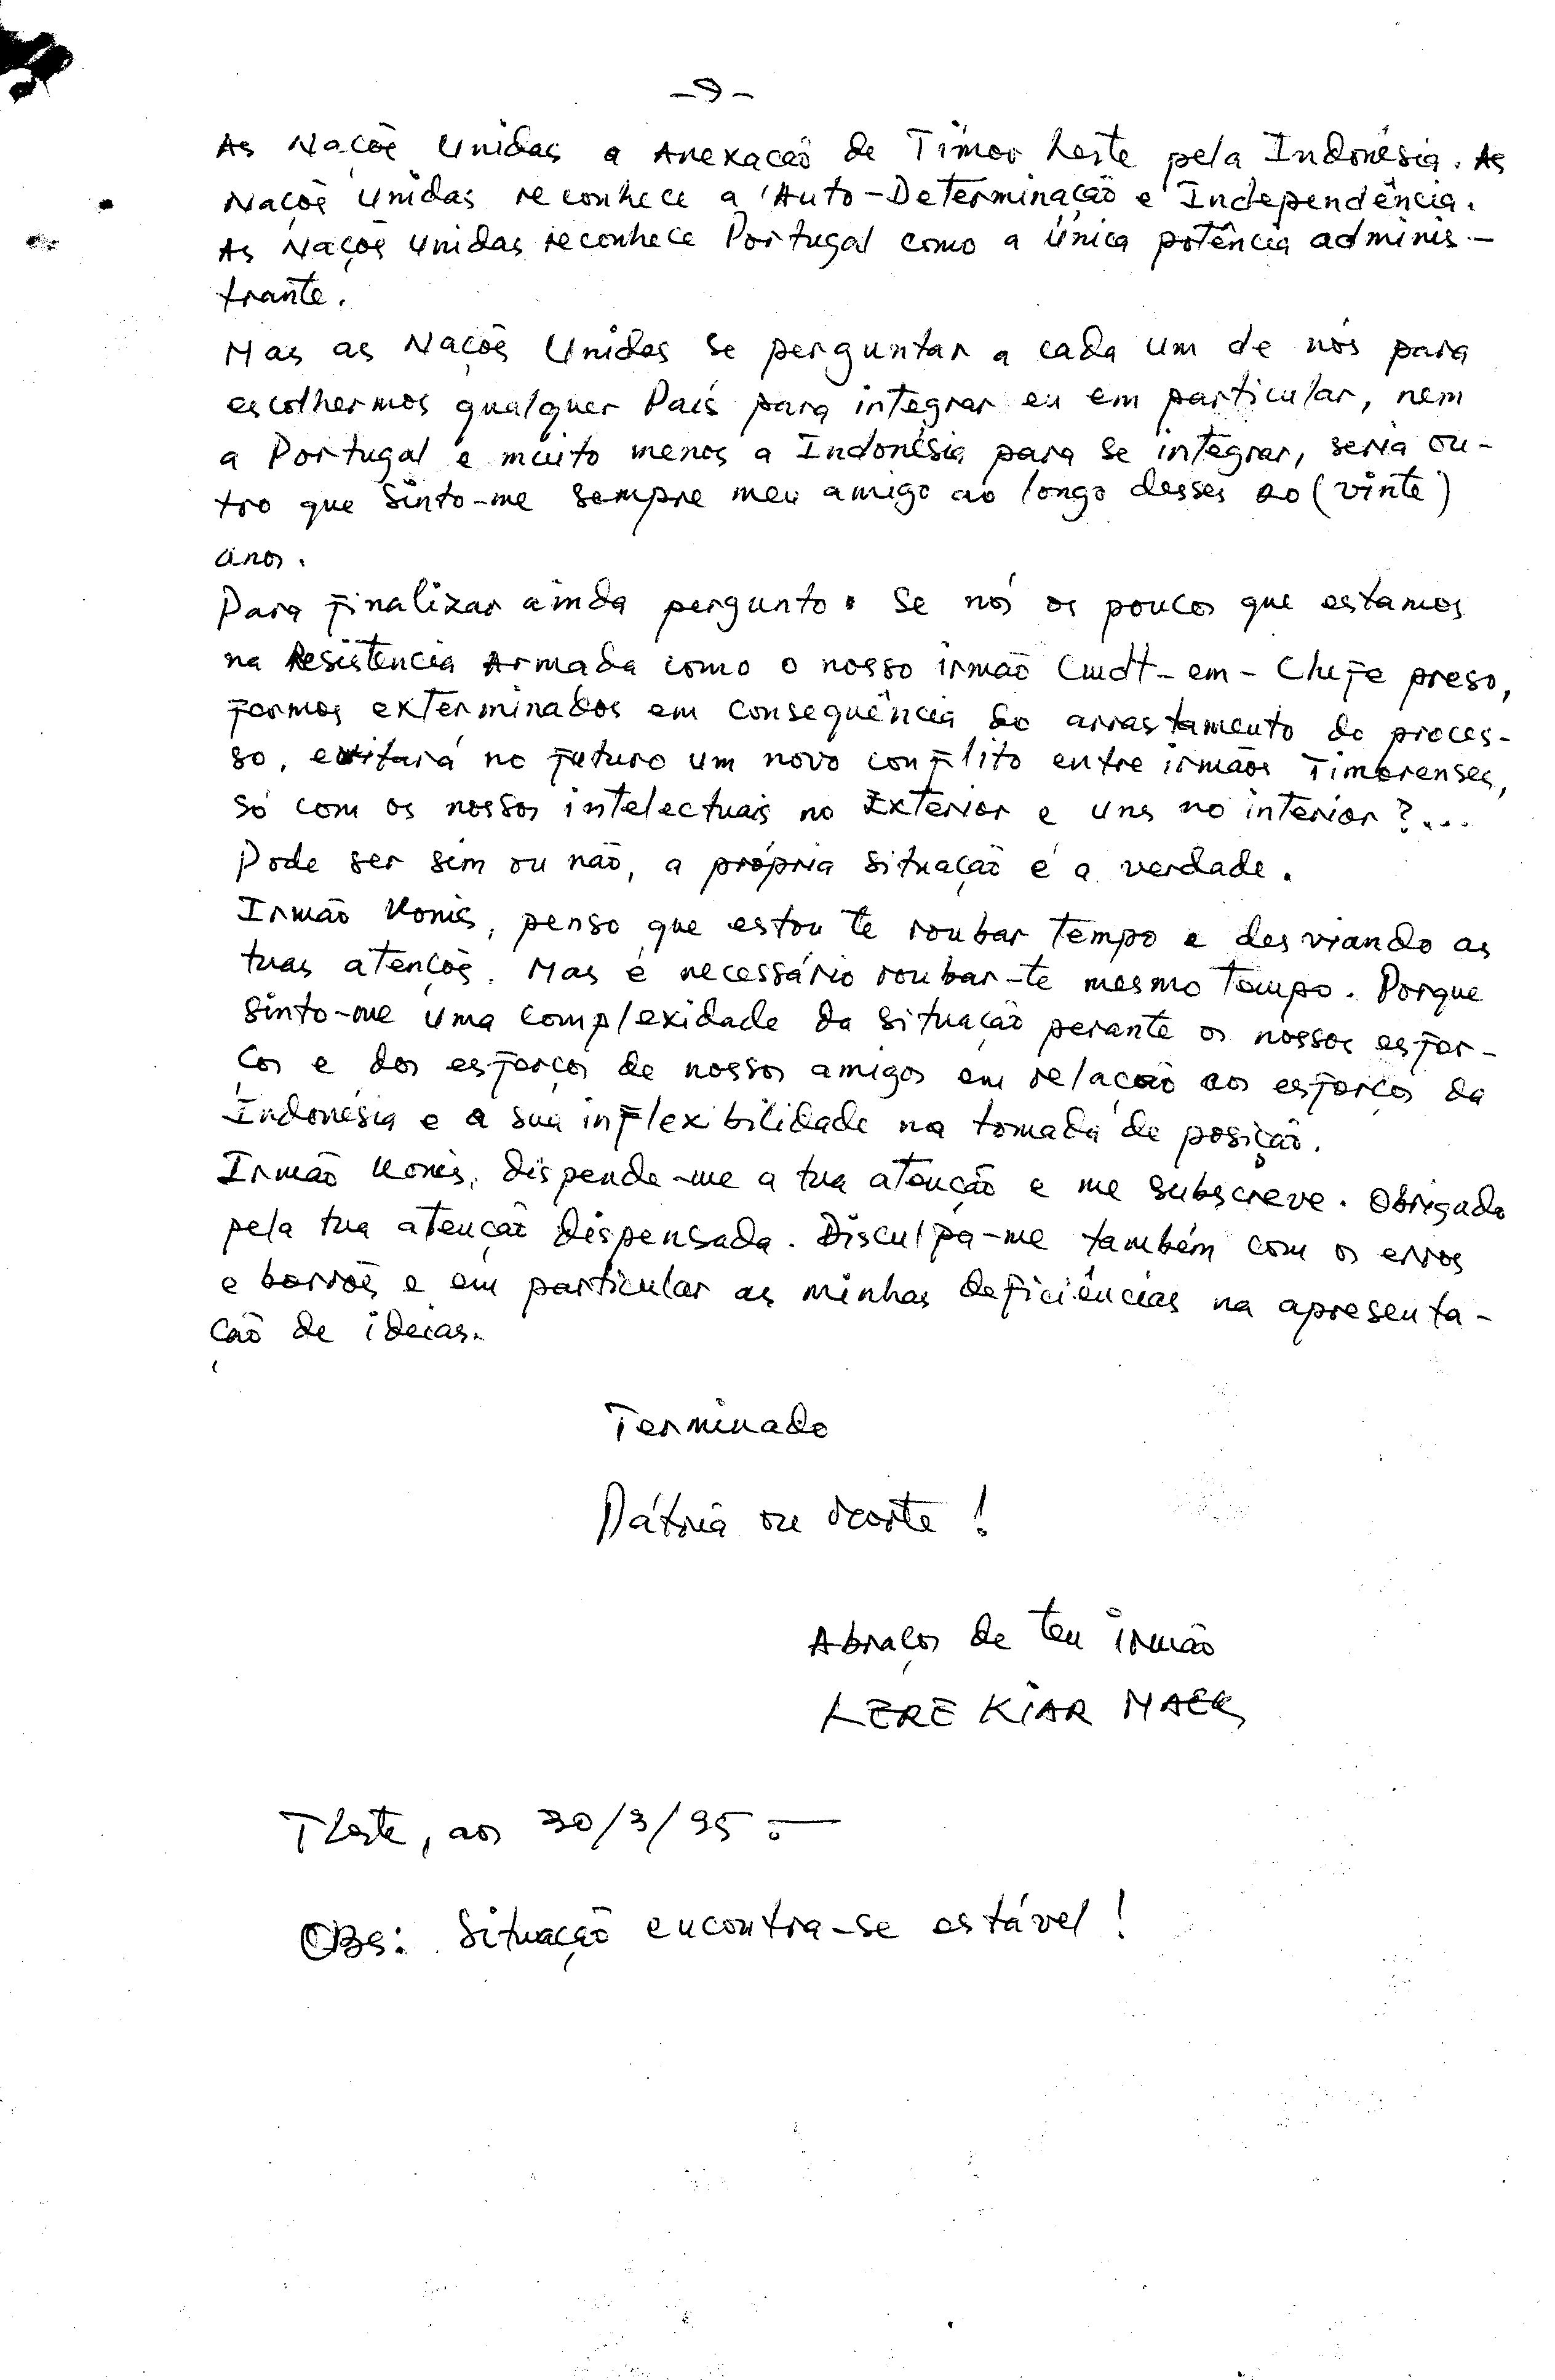 -9-
As Naçõe Unidas a Anexação de Timor Leste pela Indonésia. As
Naçõe Unidas reconhece a Auto-Determinação e Independência.
As Naçõs Unidas reconhece Portugal como a única potência adminis-
trante.
Mas as Naçõs Unidas se perguntar a cada um de nós para
escolhermos qualquer País para integrar eu em particular, nem
a Portugal e muito menos a Indonésia para se integrar, seria ou-
tro que sinto-me sempre meu amigo ao longo desses 20 (vinte)
anos.
Para finalizar ainda pergunto. Se nós os poucos que estamos
na Resistência Armada como o nosso irmão Cmdt-em-Chefe preso,
formos exterminados em consequência do arrastamento do proces-
so, evitará no futuro um novo conflito entre irmãos Timorenses,
só com os nossos intelectuais no Exterior e uns no interior?...
Pode ser sim ou não, a própria situação é a verdade.
Irmão Konis, penso que estou te roubar tempo e desviando as
tuas atençõs. Mas é necessário roubar-te mesmo tempo. Porque
sinto-me uma complexidade da situação perante os nossos esfor-
ços e dos esforços de nossos amigos em relação aos esforços da
Indonésia e a sua inflexibilidade na tomada de posição.
Irmão Konis, dispende-me a tua atenção e me subscreve. Obrigado
pela tua atenção dispensada. Disculpa-me também com os erros
e borrõs e em particular as minhas deficiências na apresenta-
ção de ideias.
Terminado
Pátria ou Morte!
Abraços de teu irmão
LERE KIAR MAEK
TLeste, aos 30/3/95.-
OBs: Situação encontra-se estável!